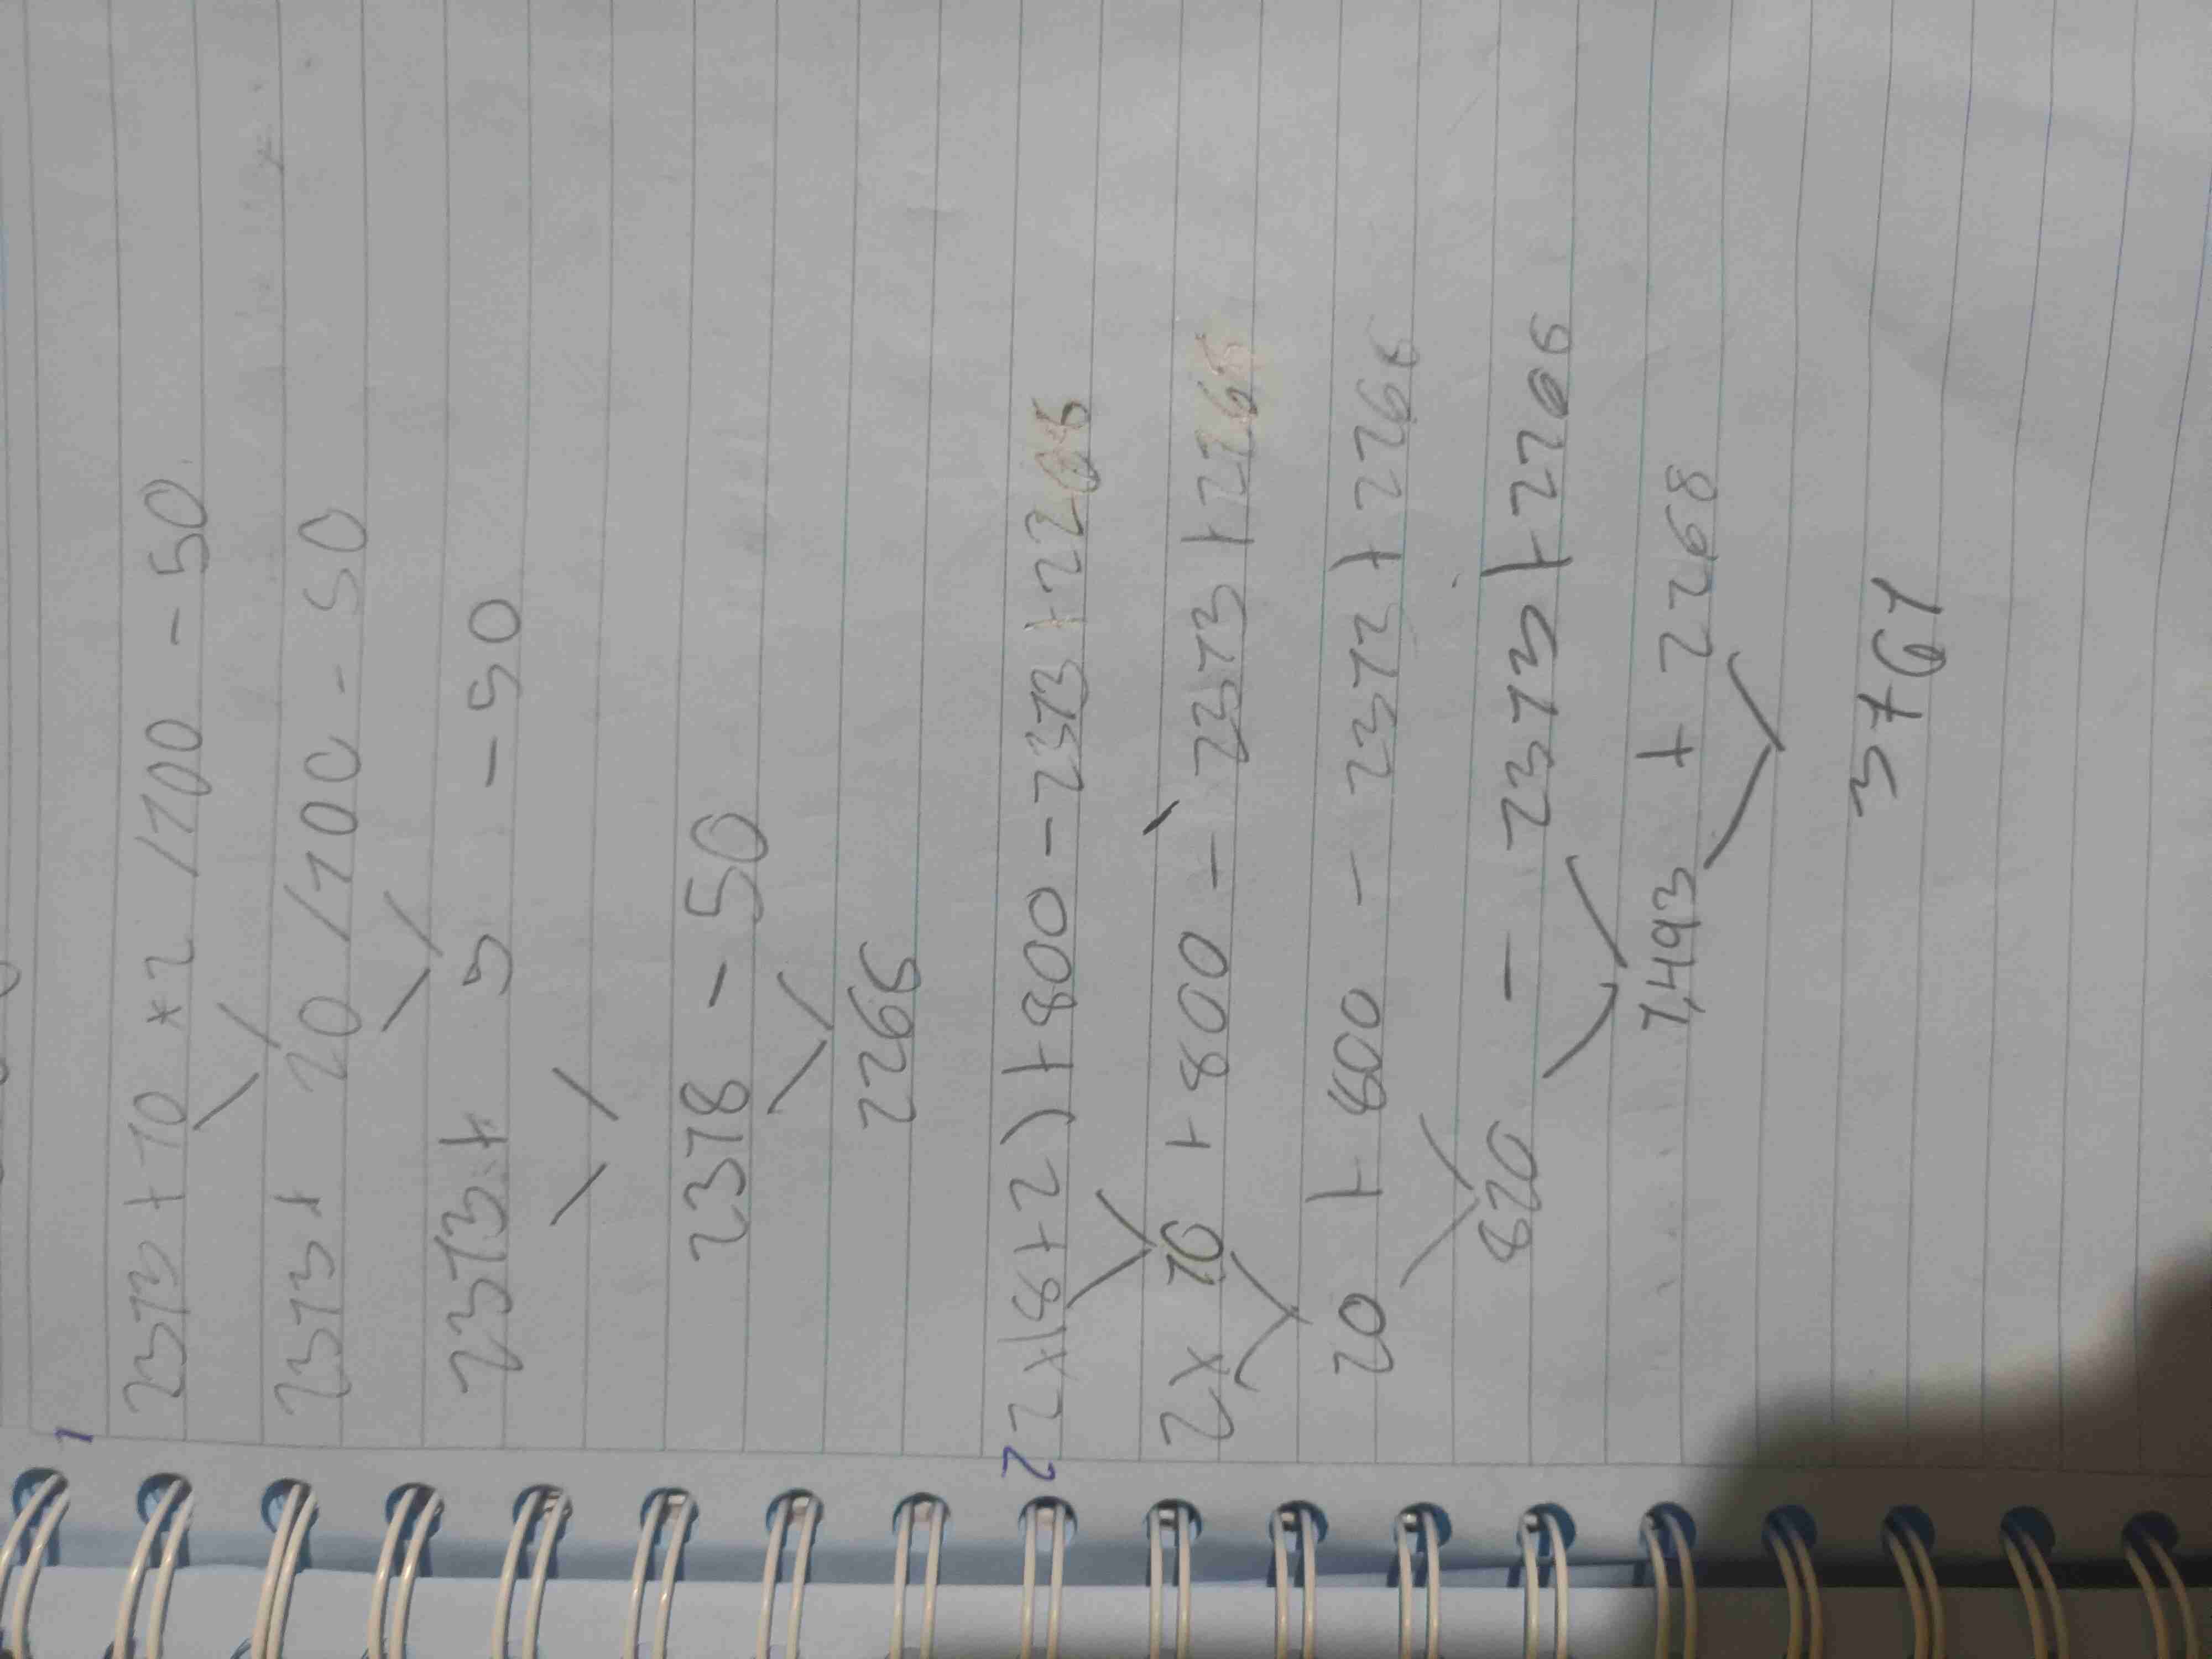 1
2373 + 10 × 2 / 100 - 50
2373 + 20 / 100 - 50
2373 + 5 - 50
2378 - 50
2268
2 2 × (8 + 2) + 800 - 2373 + 2268
2 × 10 + 800 - 2373 + 2268
20 + 800 - 2373 + 2268
820 - 2373 + 2268
1,493 + 2268
3761